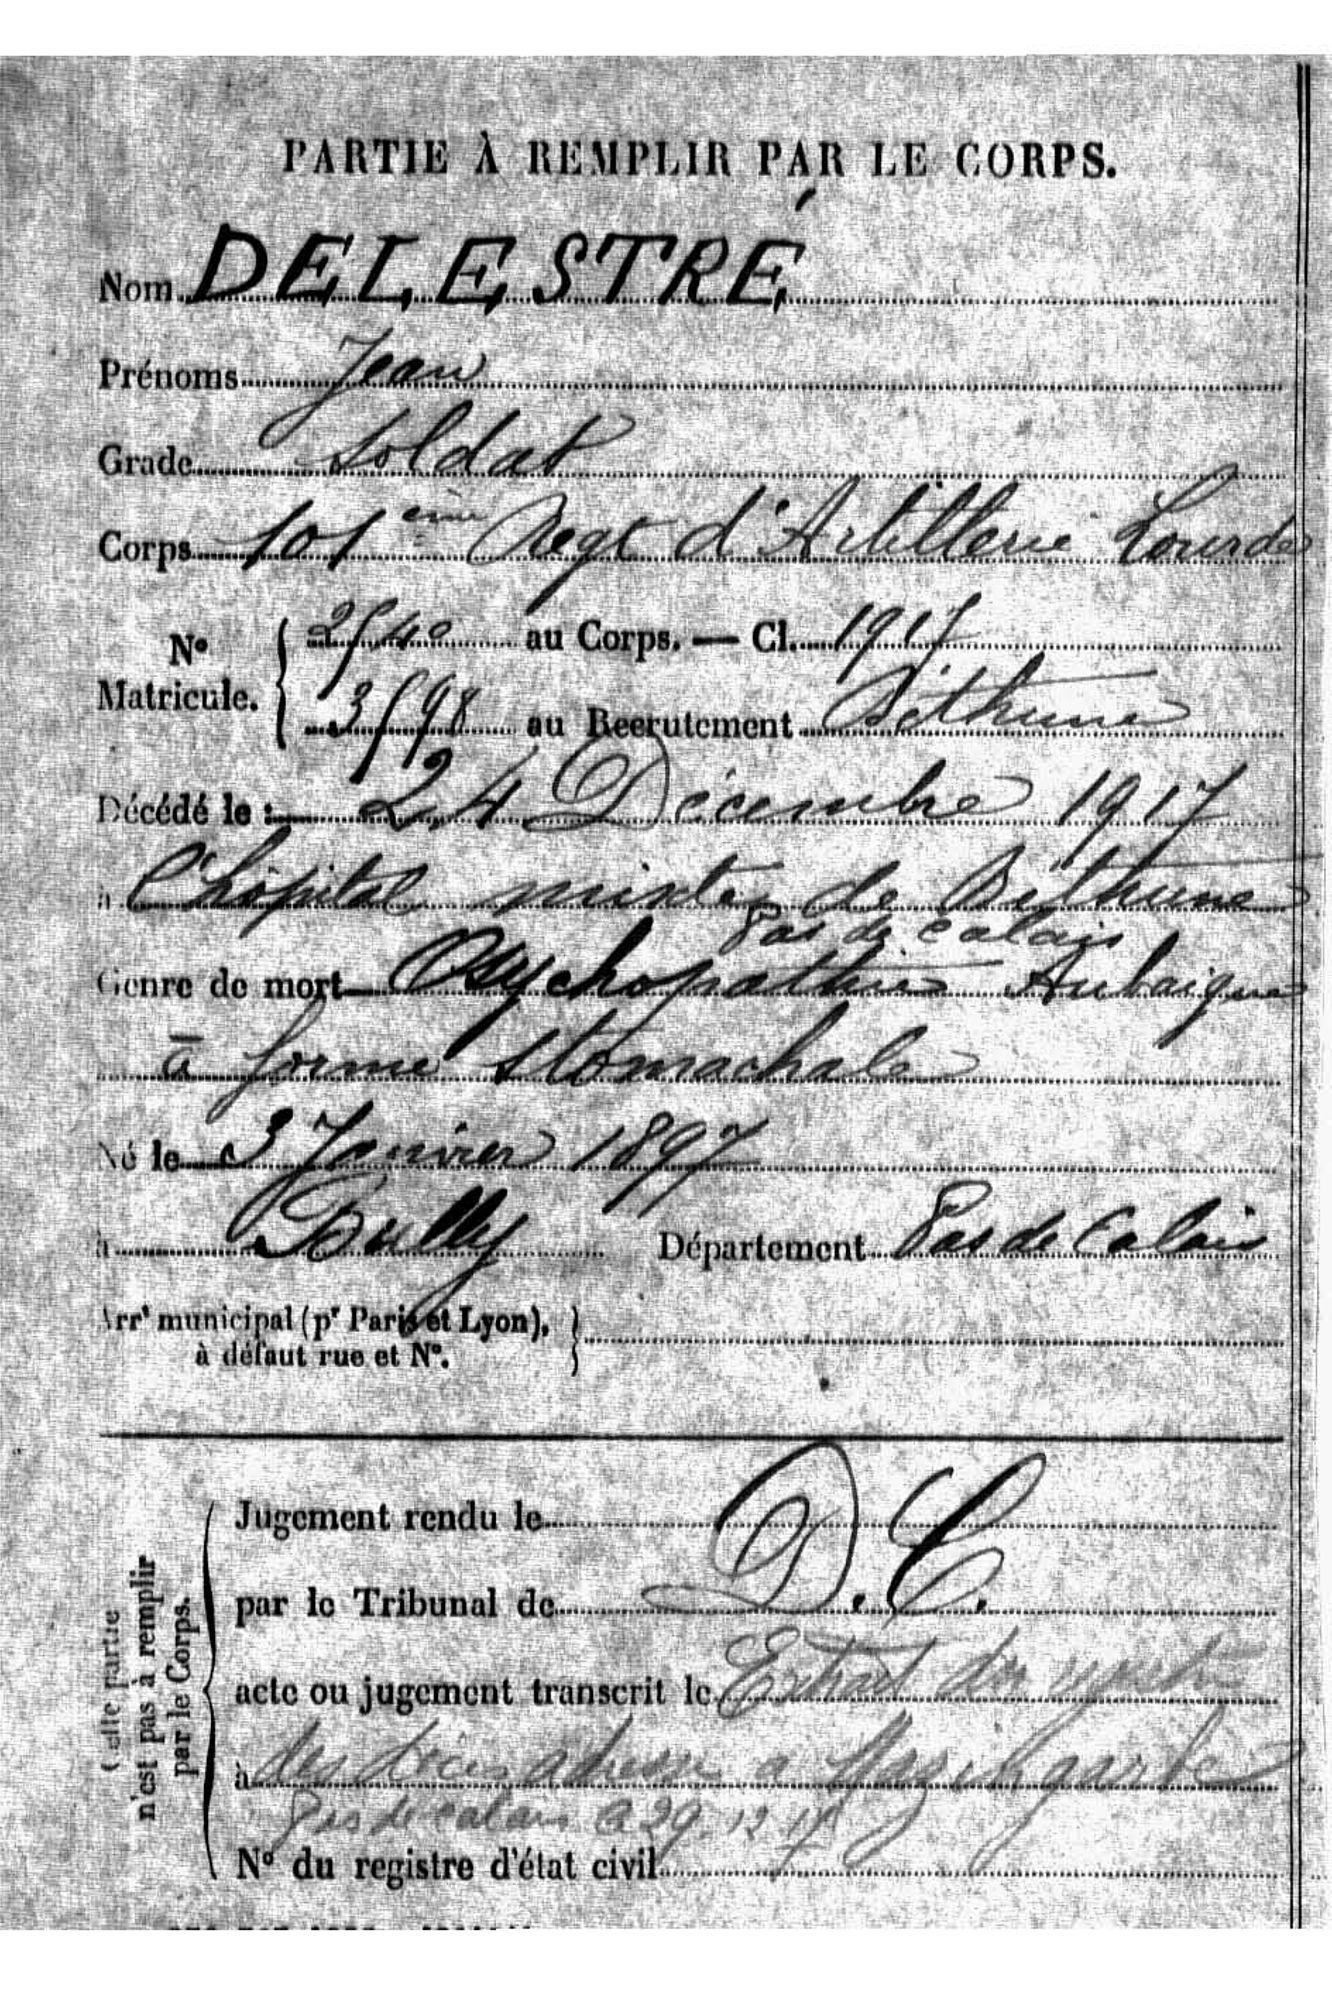 PARTIE À REMPLIR PAR LE CORPS.
Nom DELESTRÉ
Prénoms Jean
Grade Soldat
Corps 101 ème Regt d'Artillerie Lourde
No Matricule. 2540 au Corps. — Cl. 1917
3598 au Recrutement Béthune
Décédé le : 24 Décembre 1917
à l'hôpital mixte de Béthune
Pas de Calais
Genre de mort Psychopathie
à forme stomachale
Né le 3 Janvier 1897
à Bully Département Pas de Calais
Arrt municipal (pr Paris et Lyon),
à défaut rue et No.
Cette partie
n'est pas à remplir
par le Corps.
Jugement rendu le D.C.
par le Tribunal de
acte ou jugement transcrit le Extrait du
à des décès adressé a Mazingarbe
Pas de Calais a 29-12-17
No du registre d'état civil